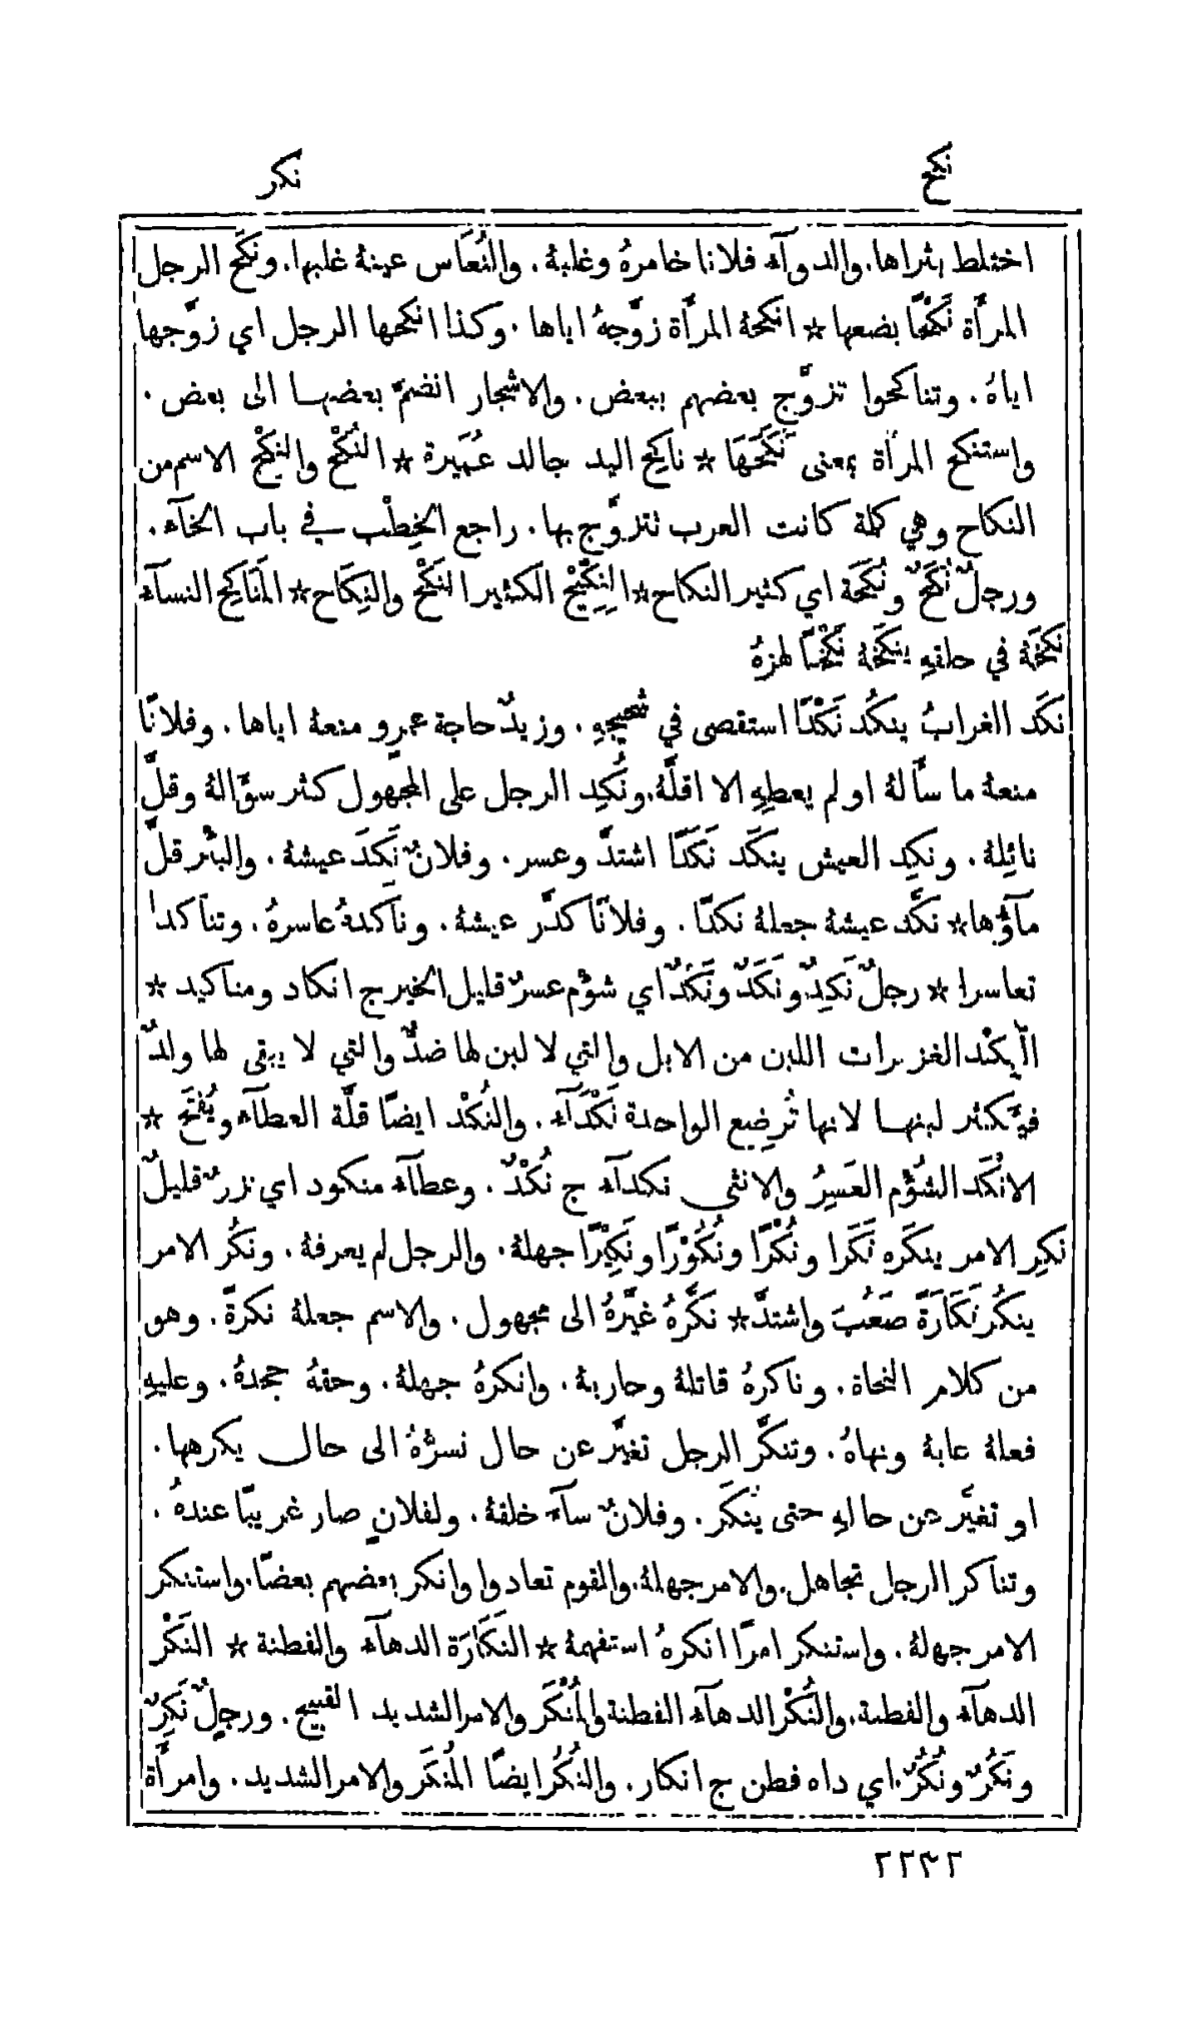 نكح
نكر
اختلط بثراها. والدوآء فلانا خامرهُ وغلبهُ. والنُعَاس عينهُ غلبها. ونكَح الرجل
المرأَة نَكْحًا بضعها * انكحهُ المرأَة زوَّجهُ اياها. وكذا انكحها الرجل اي زوَّجها
اياهُ. وتناكحوا تزوَّج بعضهم ببعض. والاشجار انضمَّ بعضها الى بعض.
واستنكح المرأَة بمعنى نَكَحَهَا * ناكِح اليد جالد عُمَيرة * النُكْح والنِكْح الاسم من
النكاح وهي كلمة كانت العرب تتزوَّج بها. راجع الخِطْب في باب الخآء.
ورجلٌ نُكَحٌ ونُكَحَة اي كثير النكاح * النِكِّيْح الكثير النَكْح والنِكَاح * المَنَاكِح النسآء
نكَخهُ في حلقهِ ينكَخهُ نَكْخًا لهزهُ
نكَد الغرابُ ينكُد نَكْدًا استقصى في شحيجهِ. وزيدٌ حاجة عمرٍو منعهُ اياها. وفلانًا
منعهُ ما سأَلهُ او لم يعطِهِ الا اقلَّهُ. ونُكِد الرجل على المجهول كثر سؤَّالهُ وقلَّ
نائِلهُ. ونكِد العيش ينكَد نَكَدًا اشتدَّ وعسر. وفلانٌ نَكَدَ عيشهُ. والبئر قلَّ
مآؤُها * نكَّد عيشهُ جعلهُ نكدًا. وفلانًا كدَّر عيشهُ. وناكدهُ عاسرهُ. وتناكدا
تعاسرا * رجلٌ نَكِدٌ ونَكَدٌ ونَكْدٌ اي شؤْم عسرٌ قليل الخير ج انكاد ومناكيد *
النُكْد الغزيرات اللبن من الابل والتي لا لبن لها ضدٌّ والتي لا يبقى لها ولدٌ
فيكثر لبنها لانها تُرضِع الواحدة نَكْدَآء. والنُكْد ايضًا قلَّة العطآء ويُفتَح *
الانكَد الشُؤْم العَسِرُ والانثى نكدآء ج نُكْدٌ. وعطآء منكود اي نزرٌ قليلٌ
نكِر الامر ينكَره نَكَرا ونُكْرًا ونُكُوْرًا ونَكِيْرًا جهلهُ. والرجل لم يعرفهُ. ونكُر الامر
ينكُر نَكَارَةً صَعُبَ واشتدَّ * نكَّرهُ غيَّرهُ الى مجهول. والاسم جعلهُ نكرةً. وهو
من كلام النحاة. وناكرهُ قاتلهُ وحاربهُ. وانكرهُ جهلهُ. وحقهُ جحدهُ. وعليهِ
فعلهُ عابهُ ونهاهُ. وتنكَّر الرجل تغيَّر عن حال تسرُّهُ الى حال يكرهها.
او تغيَّر عن حالهِ حتى يُنكَر. وفلانٌ سآء خلقهُ. ولفلانٍ صار غريبًا عندهُ.
وتناكر الرجل تجاهل. والامر جهلهُ. والقوم تعادوا وانكر بعضهم بعضًا. واستنكر
الامر جهلهُ. واستنكر امرًا انكرهُ استفهمهُ * النَكَارَة الدهآء والفطنة * النَكْر
الدهآء والفطنة. والنُكْر الدهآء الفطنة والمُنْكَر والامر الشديد القبيح. ورجلٌ نَكِرٌ
ونَكُرٌ ونُكُرٌ اي داه فطن ج انكار. والنُكُر ايضًا المُنكَر والامر الشديد. وامرأَة
٢٢٣٢